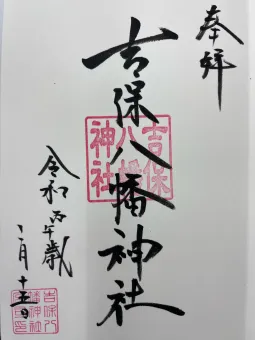 奉拝
吉保八幡神社
吉保
八幡
神社
令和丙午歳
二月十五日
吉保八
幡神社